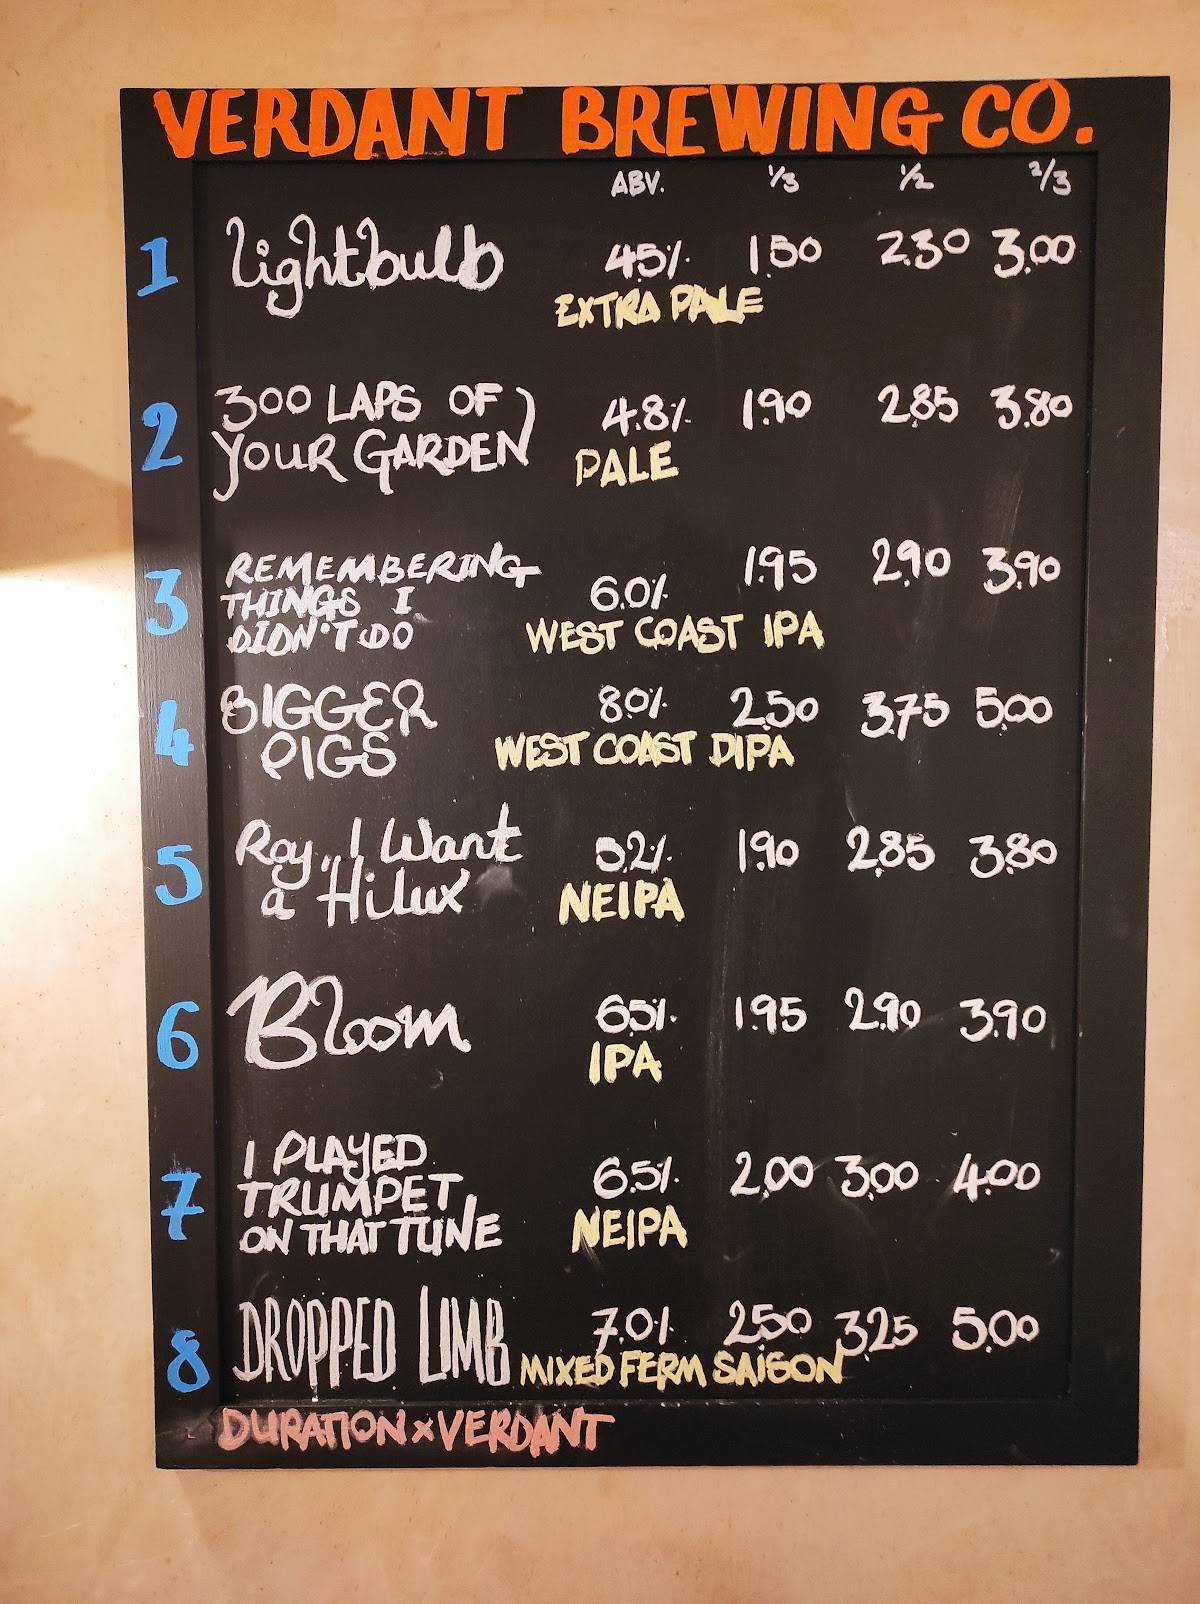 VERDANT BREWING CO.
ABV. 1/3 1/2 2/3
1 Lightbulb 4.5% 1.50 2.30 3.00
EXTRA PALE
2 300 LAPS OF 4.8% 1.90 2.85 3.80
YOUR GARDEN PALE
3 REMEMBERING 1.95 2.90 3.90
THINGS I 6.0%
DIDN'T DO WEST COAST IPA
4 BIGGER 8.0% 2.50 3.75 5.00
PIGS WEST COAST DIPA
5 Roy, I Want 5.2% 1.90 2.85 3.80
a Hilux NEIPA
6 Bloom 6.5% 1.95 2.90 3.90
IPA
7 I PLAYED 6.5% 2.00 3.00 4.00
TRUMPET
ON THAT TUNE NEIPA
8 DROPPED LIMB 7.0% 2.50 3.25 5.00
MIXED FERM SAISON
DURATION x VERDANT